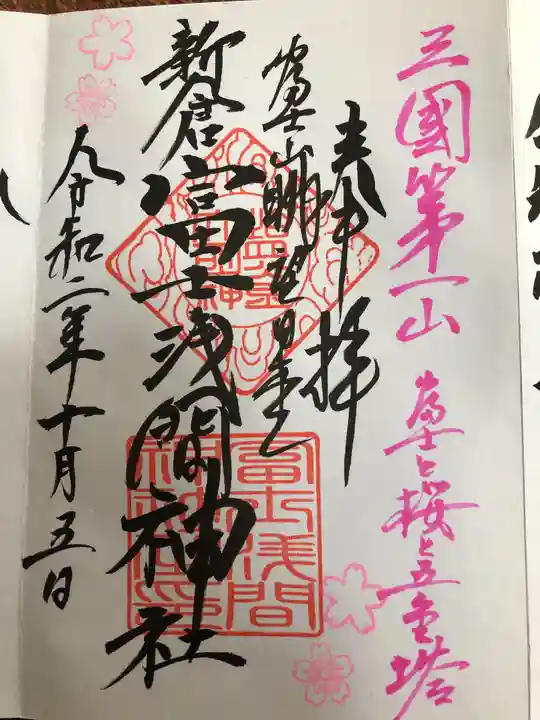 三國第一山
富士と桜と五重塔
奉拝
富士山眺望日本一
新倉富士浅間神社
令和二年十月五日
冨士浅間
神社之印